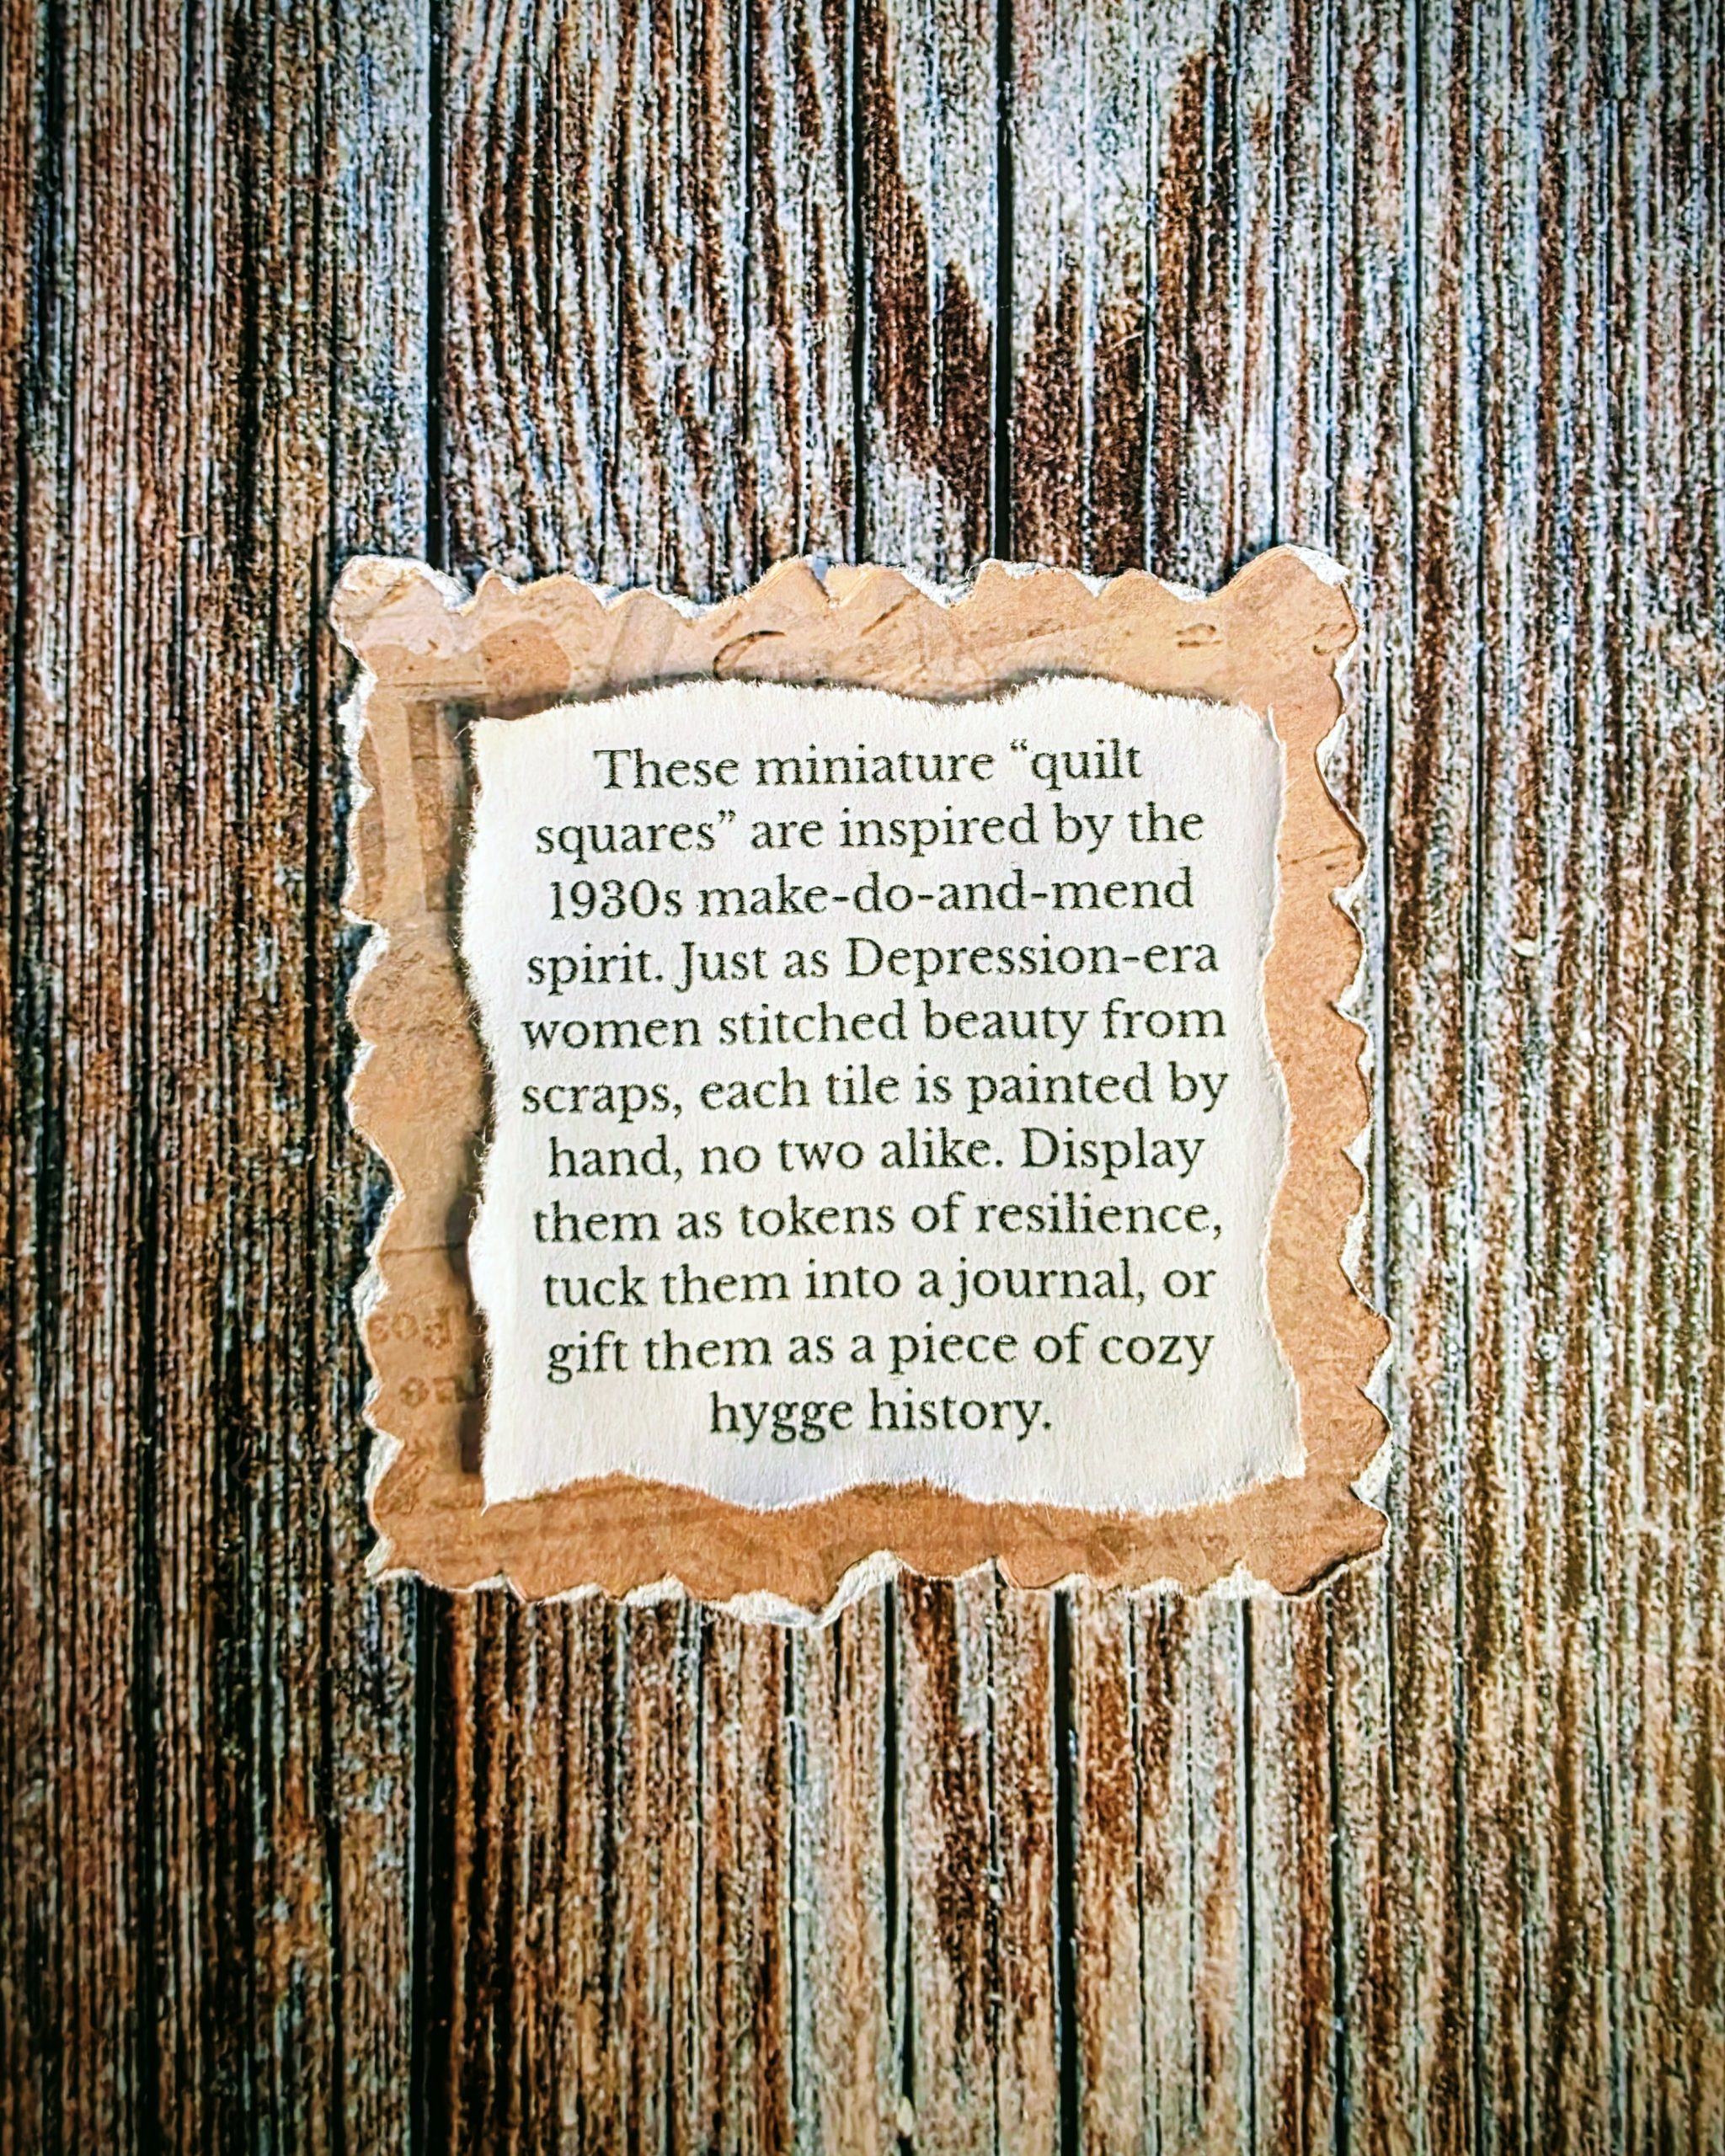 These miniature “quilt
squares” are inspired by the
1930s make-do-and-mend
spirit. Just as Depression-era
women stitched beauty from
scraps, each tile is painted by
hand, no two alike. Display
them as tokens of resilience,
tuck them into a journal, or
gift them as a piece of cozy
hygge history.